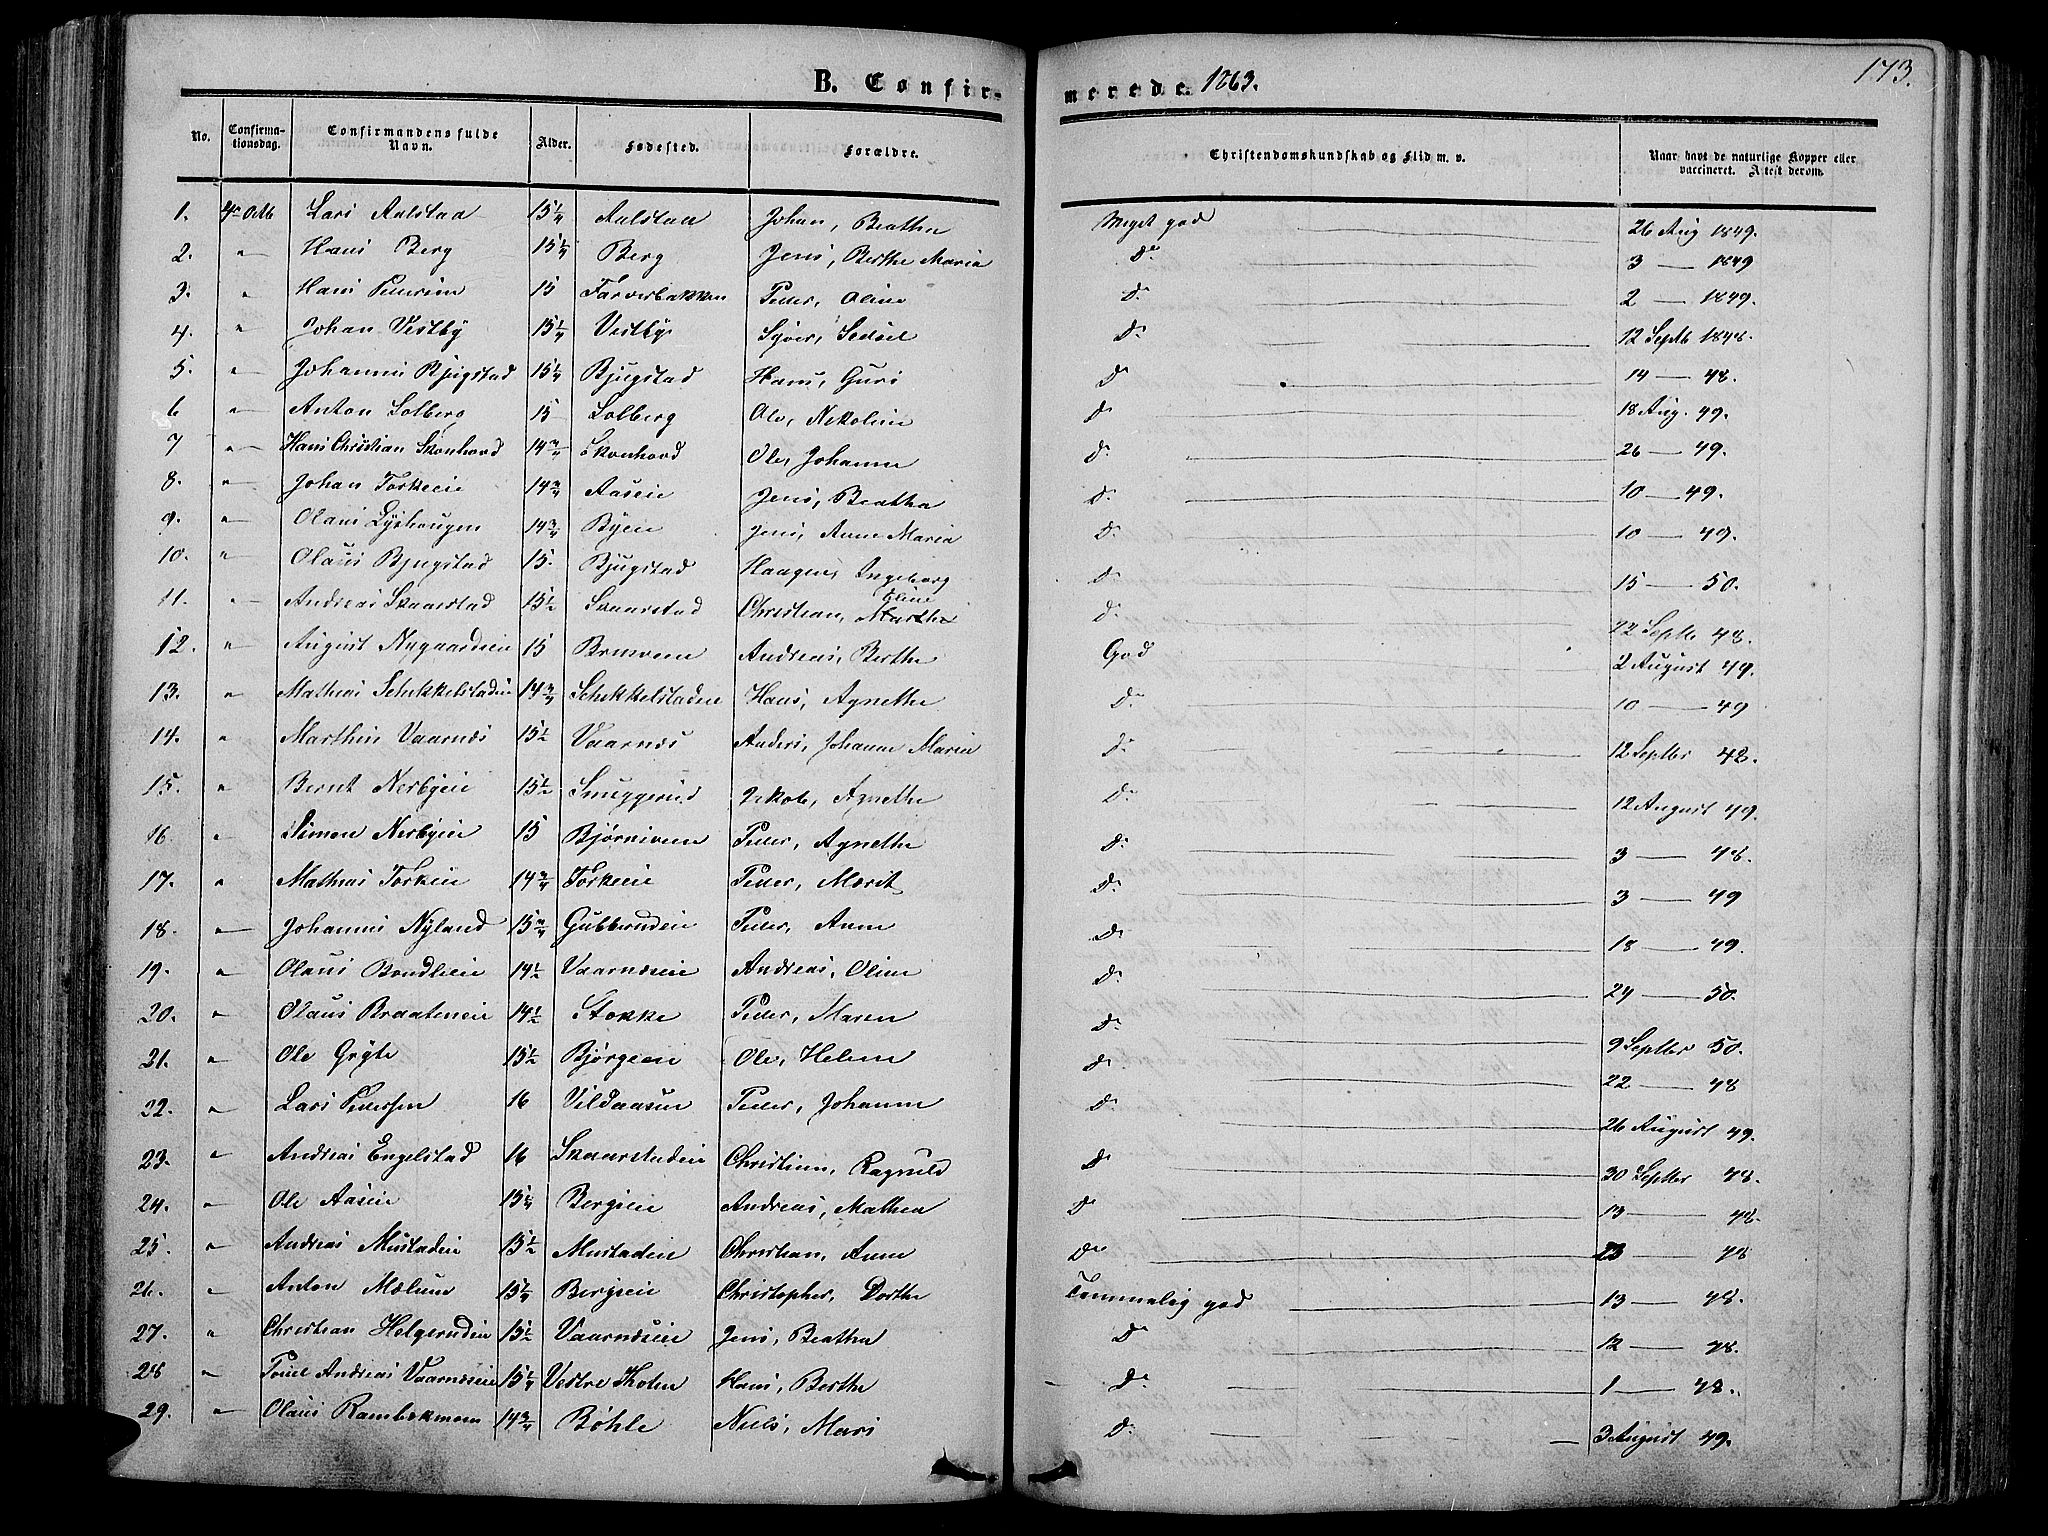 173.
B. Confirmerede 1863.
No. Confirmationsdag. Confirmandens fulde Navn. Alder. Fødested. Forældre. Christendomskundskab og Flid m. v. Naar havt de naturlige Kopper eller vaccineret. Attest derom.
1. 4de Octb Lars Aalstaa 15 1/4 Aalstaa Johan, Beathe Meget god 26 Aug 1849.
2. " Hans Berg 15 1/4 Berg Jens, Berthe Maria Do 3 — 1849
3. " Hans Pedersen 15 Farverbakken Peder, Oline Do 2 — 1849.
4. " Johan Vestby 15 1/4 Vestby Syver, Sedsel Do 12 Septb 1848.
5. " Johannes Bjugstad 15 1/4 Bjugstad Hans, Guri Do 14 — 48.
6 " Anton Solberg 15 Solberg Ole, Nikoline Do 18 Aug. 49.
7 " Hans Christian Skonhovd 14 3/4 Skonhovd Ole, Johanne Do 26 — 49.
8. " Johan Torkeie 14 3/4 Aaseie Jens, Beatha Do 10 — 49.
9. " Olaus Lyshaugen 14 3/4 Byeie Jens, Anne Maria Do 10 — 49.
10. " Olaus Bjugstad 15. Bjugstad Haagen, Ingeborg Do 15 — 50.
11. " Andreas Skaarstad 15 1/2 Skaarstad Christian, Marthe Eline Do 22 Septbr 48.
12. " August Nygaardseie 15 Andreas, Berthe God 2 August 49.
13. " Mathias Schikkelstadeie 14 3/4 Schikkelstadeie Hans, Agnethe Do 10 — 49
14. " Marthin Vaarnæs 15 1/2 Vaarnæs Anders, Johanne Maria Do 12 Septbr 48.
15. " Bernt Nerbyeie 15 1/2 Snuggerud Jakob, Agnethe Do 12 August 49.
16. " Simen Nerbyeie 15 Bjørnivene Peder, Agnethe Do 3 — 48.
17. " Mathias Torkeie 14 3/4 Torkeie Peder, Marit Do 3 — 49
18. " Johannes Nyland 15 3/4 Gubberudeie Peder, Anne Do 18 — 49.
19. " Olaus Bondlieie 14 1/2 Vaarnæseie Andreas, Oline Do 24 — 50.
20. " Olaus Braateneie 14 1/2 Stokke Peder, Maren Do 9 Septbr 50.
21. " Ole Gryte 15 1/2 Bjørgeeie Ole, Helene Do 22 — 48
22. " Lars Pedersen 16 Vildaasen Peder, Johanne Do 26 August 49.
23. " Andreas Engelstad 16 Skaarstadeie Christian, Ragnild Do 30 Septbr 48.
24. " Ole Aaseie 15 1/4 Bergseie Andreas, Mathea Do 13 — 48.
25. " Andreas Mustadeie 15 1/2 Mustadeie Christian, Anne Do 23 — 48
26. " Anton Mælum 15 1/4 Bergseie Christopher, Dorthe Temmelig god 13 — 48.
27. " Christian Helgerudeie 15 1/2 Vaarnæseie Jens, Beathe Do 12 — 48.
28 " Poul Andreas Vaarnæseie 15 1/4 Vestre Thoten Hans, Berthe Do 1 — 48.
29. " Olaus Rambekmoen 14 3/4 Bøhle Niels, Mari Do 3 August 49.